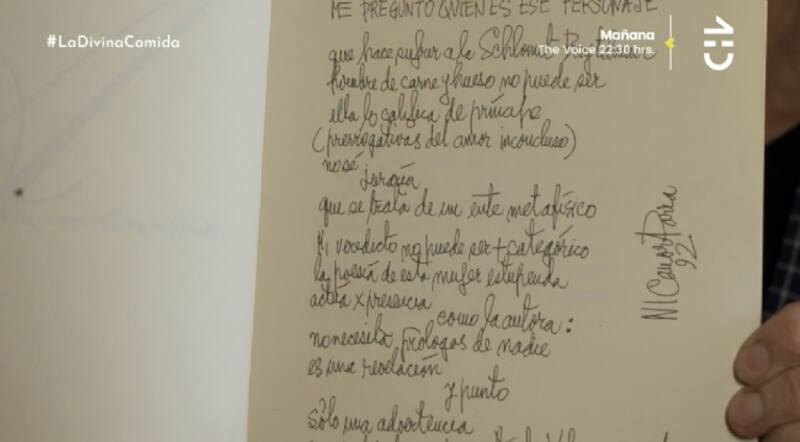 #LaDivinaComida
Mañana
The Voice 22:30 hrs.
ME PREGUNTO QUIEN ES ESE PERSONAJE
que hace sufrir a la Schlomit Baytelman
hombre de carne y hueso no puede ser
ella lo califica de príncipe
(prerrogativas del amor inconcluso)
no sé
juraría
que se trata de un ente metafísico
Mi veredicto no puede ser + categórico
la poesía de esta mujer estupenda
actúa x presencia
como la autora:
no necesita prólogos de nadie
es una revelación
y punto
Sólo una advertencia
NICanor Parra
92